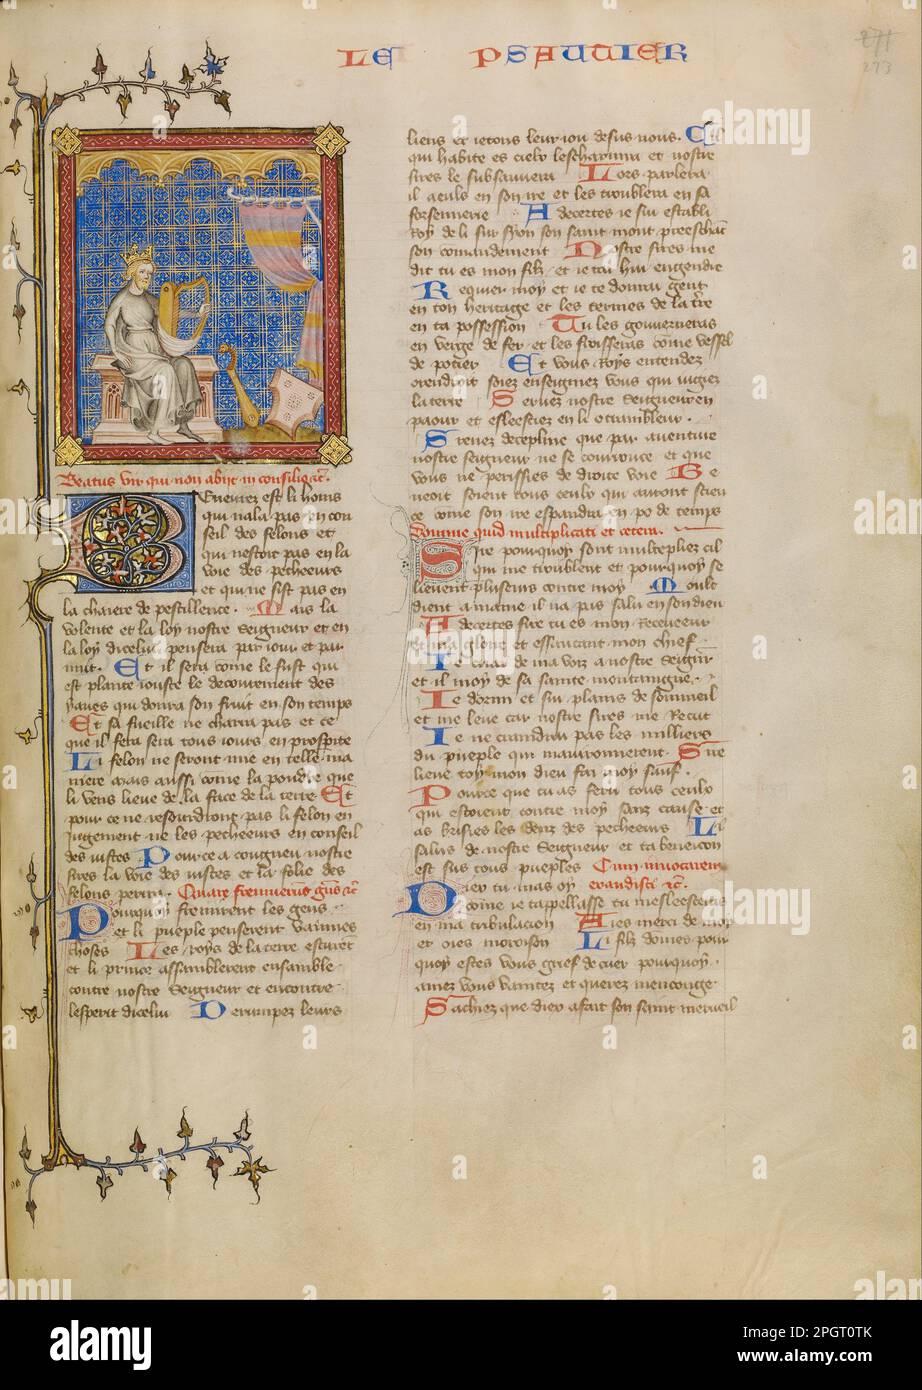 LE PSAUTIER
271
273
Beatus vir qui non abijt in consilio etc.
Bueurez est li homs
qui nala pas en con
seil des felons et
qui nestoit pas en la
voie des pecheeurs
et qui ne sist pas en
la chaiere de pestillence. Mais la
volente et la loy nostre Seigneur et en
la loy dicelui pensera par iour et par
nuit. Et il sera come le fust qui
est plante iouste le decourement des
yaues qui donra son fruit en son temps
Et sa fueille ne charra pas et ce
que il fera sera tous iours en prosperite
Li felon ne seront mie en telle ma
niere mais aussi come la poudre que
li vens lieue de la face de la terre Et
pour ce ne resourdront pas li felon en
iugement ne les pecheeurs en conseil
des iustes Pource a congneu nostre
sires la voie des iustes et la folie des
felons perira. Quare fremuerunt gentes etc
Pourquoy fremirent les gens
et li pueple penserent vainnes
choses Les roys de la terre esturet
et li prince assemblerent ensamble
contre nostre Seigneur et encontre
lesperit dicelui Derumpez leurs
liens et ietons leur iou desus nous. Cil
qui habite es cielx les et nostre
sires le subsannera Lors parlera
il a euls en son ire et les troublera en sa
forsennerie Adecertes ie sui establi
Roy de li sur syon son saint mont preeschant
son comandement Nostre sires me
dit tu es mon filz et ie tai hui engendre
Requier moy et ie te donrai gent
en ton heritage et les termes de la terre
en ta possession Tu les gouverneras
en verge de fer et les froisseras come vessel
de potier Et vous Roys entendez
orendroit soiez enseignez vous qui iugiez
la terre Servez nostre Seigneur en
paour et esleesciez en li o trambleur.
Prenez decepline que par aventure
nostre seigneur ne se courouce et que
vous ne perissies de droite voie Be
neoit soient tous ceulx qui auront fience
en
ce come son ire espandra en po de temps
Domine quid multiplicati et cetera.
Sire pourquoy sont multepliez cil
qui me troublent et pourquoy se
lieuent plusieurs contre moy Moult
dient a mame il na pas salu en son dieu
Adecertes sire tu es mon Receveur
et ma gloire et essaucant mon chief
Ie criai de ma voix a nostre Seigneur
et il moy de sa sainte montaingne.
Ie dormi et sui plains de sommeil
et me leue car nostre sires me Recut
Ie ne craindrai pas les milliers
du pueple qui mauironnerent. Sire
lieue toy mon dieu fai moy sauf.
Pource que tu as feru tous ceulx
qui estoient contre moy sanz cause et
as brisies les denz des pecheeurs Li
salus de nostre Seigneur et ta beneicon
est sus tous pueples Cum invocarem
Diex tu mas oy exaudisti etc.
come ie tappellasse tu mesleescieras
en ma tribulacion Aies merci de moy
et oies moroison Li filz domes pour
quoy estes vous grief de cuer pourquoy
amez vous vanitez et querez menconge
Sachiez que diex a fait son saint merueil
alamy
alamy
Image ID: 2PGT0TK
www.alamy.com